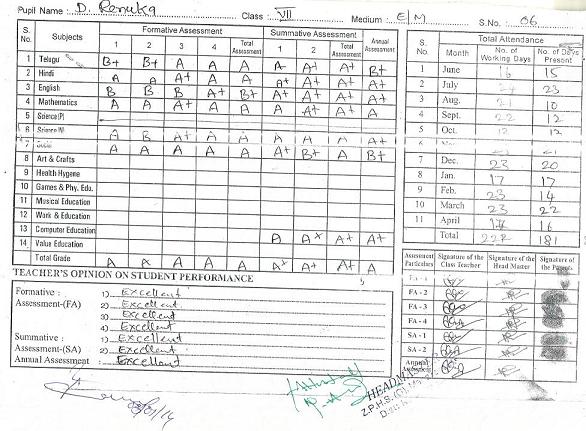 Pupil Name : D. Renuka Class : VII Medium : E/M S.No. : 06
S. No. Subjects Formative Assessment Summative Assessment Annual Assessment
1 2 3 4 Total Assessment 1 2 Total Assessment
1 Telugu B+ B+ A A A A A+ A+ B+
2 Hindi A A A+ A A A+ A+ A+ A
3 English B B B A+ B+ A A+ A+ A
4 Mathematics A A A+ A A A A+ A+ A
5 Science(P)
6 Science A B A+ A A A A A A
7 Social A A A A A A+ B+ A B+
8 Art & Crafts
9 Health Hygene
10 Games & Phy. Edu.
11 Musical Education
12 Work & Education
13 Computer Education
14 Value Education A A+ A+ A+
Total Grade A A A A A A+ A+ A+ A
TEACHER'S OPINION ON STUDENT PERFORMANCE
Formative : 1) Excellent
Assessment-(FA) 2) Excellent
3) Excellent
4) Excellent
Summative : 1) Excellent
Assessment-(SA) 2) Excellent
Annual Assessment Excellent
S. No. Month Total Attendance
No. of Working Days No. of Days Present
1 June 16 15
2 July 23
3 Aug. 10
4 Sept. 22 12
5 Oct. 12 12
7 Dec. 23 20
8 Jan. 17 17
9 Feb. 23 14
10 March 23 22
11 April 16
Total 222 181
Assessment Particulars Signature of the Class Teacher Signature of the Head Master Signature of the Parents
FA - 1
FA - 2
FA - 3
FA - 4
SA - 1
SA - 2
Annual Assessment
HEADMAS
Z.P.H.S.